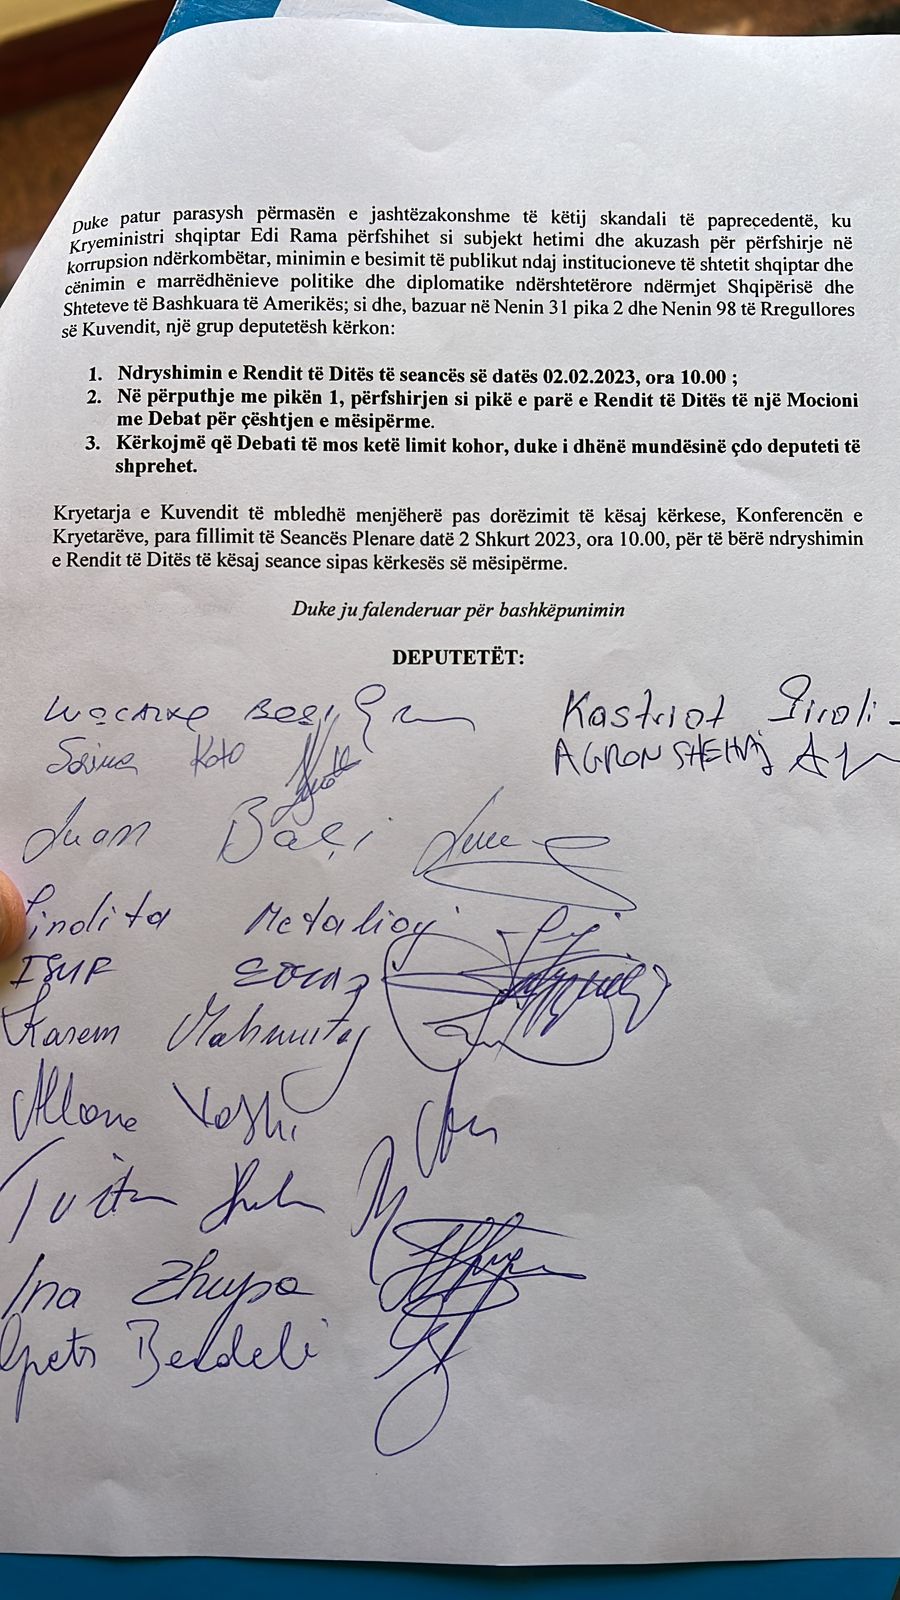 Duke patur parasysh përmasën e jashtëzakonshme të këtij skandali të paprecedentë, ku
Kryeministri shqiptar Edi Rama përfshihet si subjekt hetimi dhe akuzash për përfshirje në
korrupsion ndërkombëtar, minimin e besimit të publikut ndaj institucioneve të shtetit shqiptar dhe
cënimin e marrëdhënieve politike dhe diplomatike ndërshtetërore ndërmjet Shqipërisë dhe
Shteteve të Bashkuara të Amerikës; si dhe, bazuar në Nenin 31 pika 2 dhe Nenin 98 të Rregullores
së Kuvendit, një grup deputetësh kërkon:
1. Ndryshimin e Rendit të Ditës të seancës së datës 02.02.2023, ora 10.00 ;
2. Në përputhje me pikën 1, përfshirjen si pikë e parë e Rendit të Ditës të një Mocioni
me Debat për çështjen e mësipërme.
3. Kërkojmë që Debati të mos ketë limit kohor, duke i dhënë mundësinë çdo deputeti të
shprehet.
Kryetarja e Kuvendit të mbledhë menjëherë pas dorëzimit të kësaj kërkese, Konferencën e
Kryetarëve, para fillimit të Seancës Plenare datë 2 Shkurt 2023, ora 10.00, për të bërë ndryshimin
e Rendit të Ditës të kësaj seance sipas kërkesës së mësipërme.
Duke ju falenderuar për bashkëpunimin
DEPUTETËT:
Kastriot Piroli
Koto AGRON SHEHAJ
Luan Baçi
Lindita Metaliaj
Mahmutaj
Albana Vokshi
Ina Zhupa
Bendeli